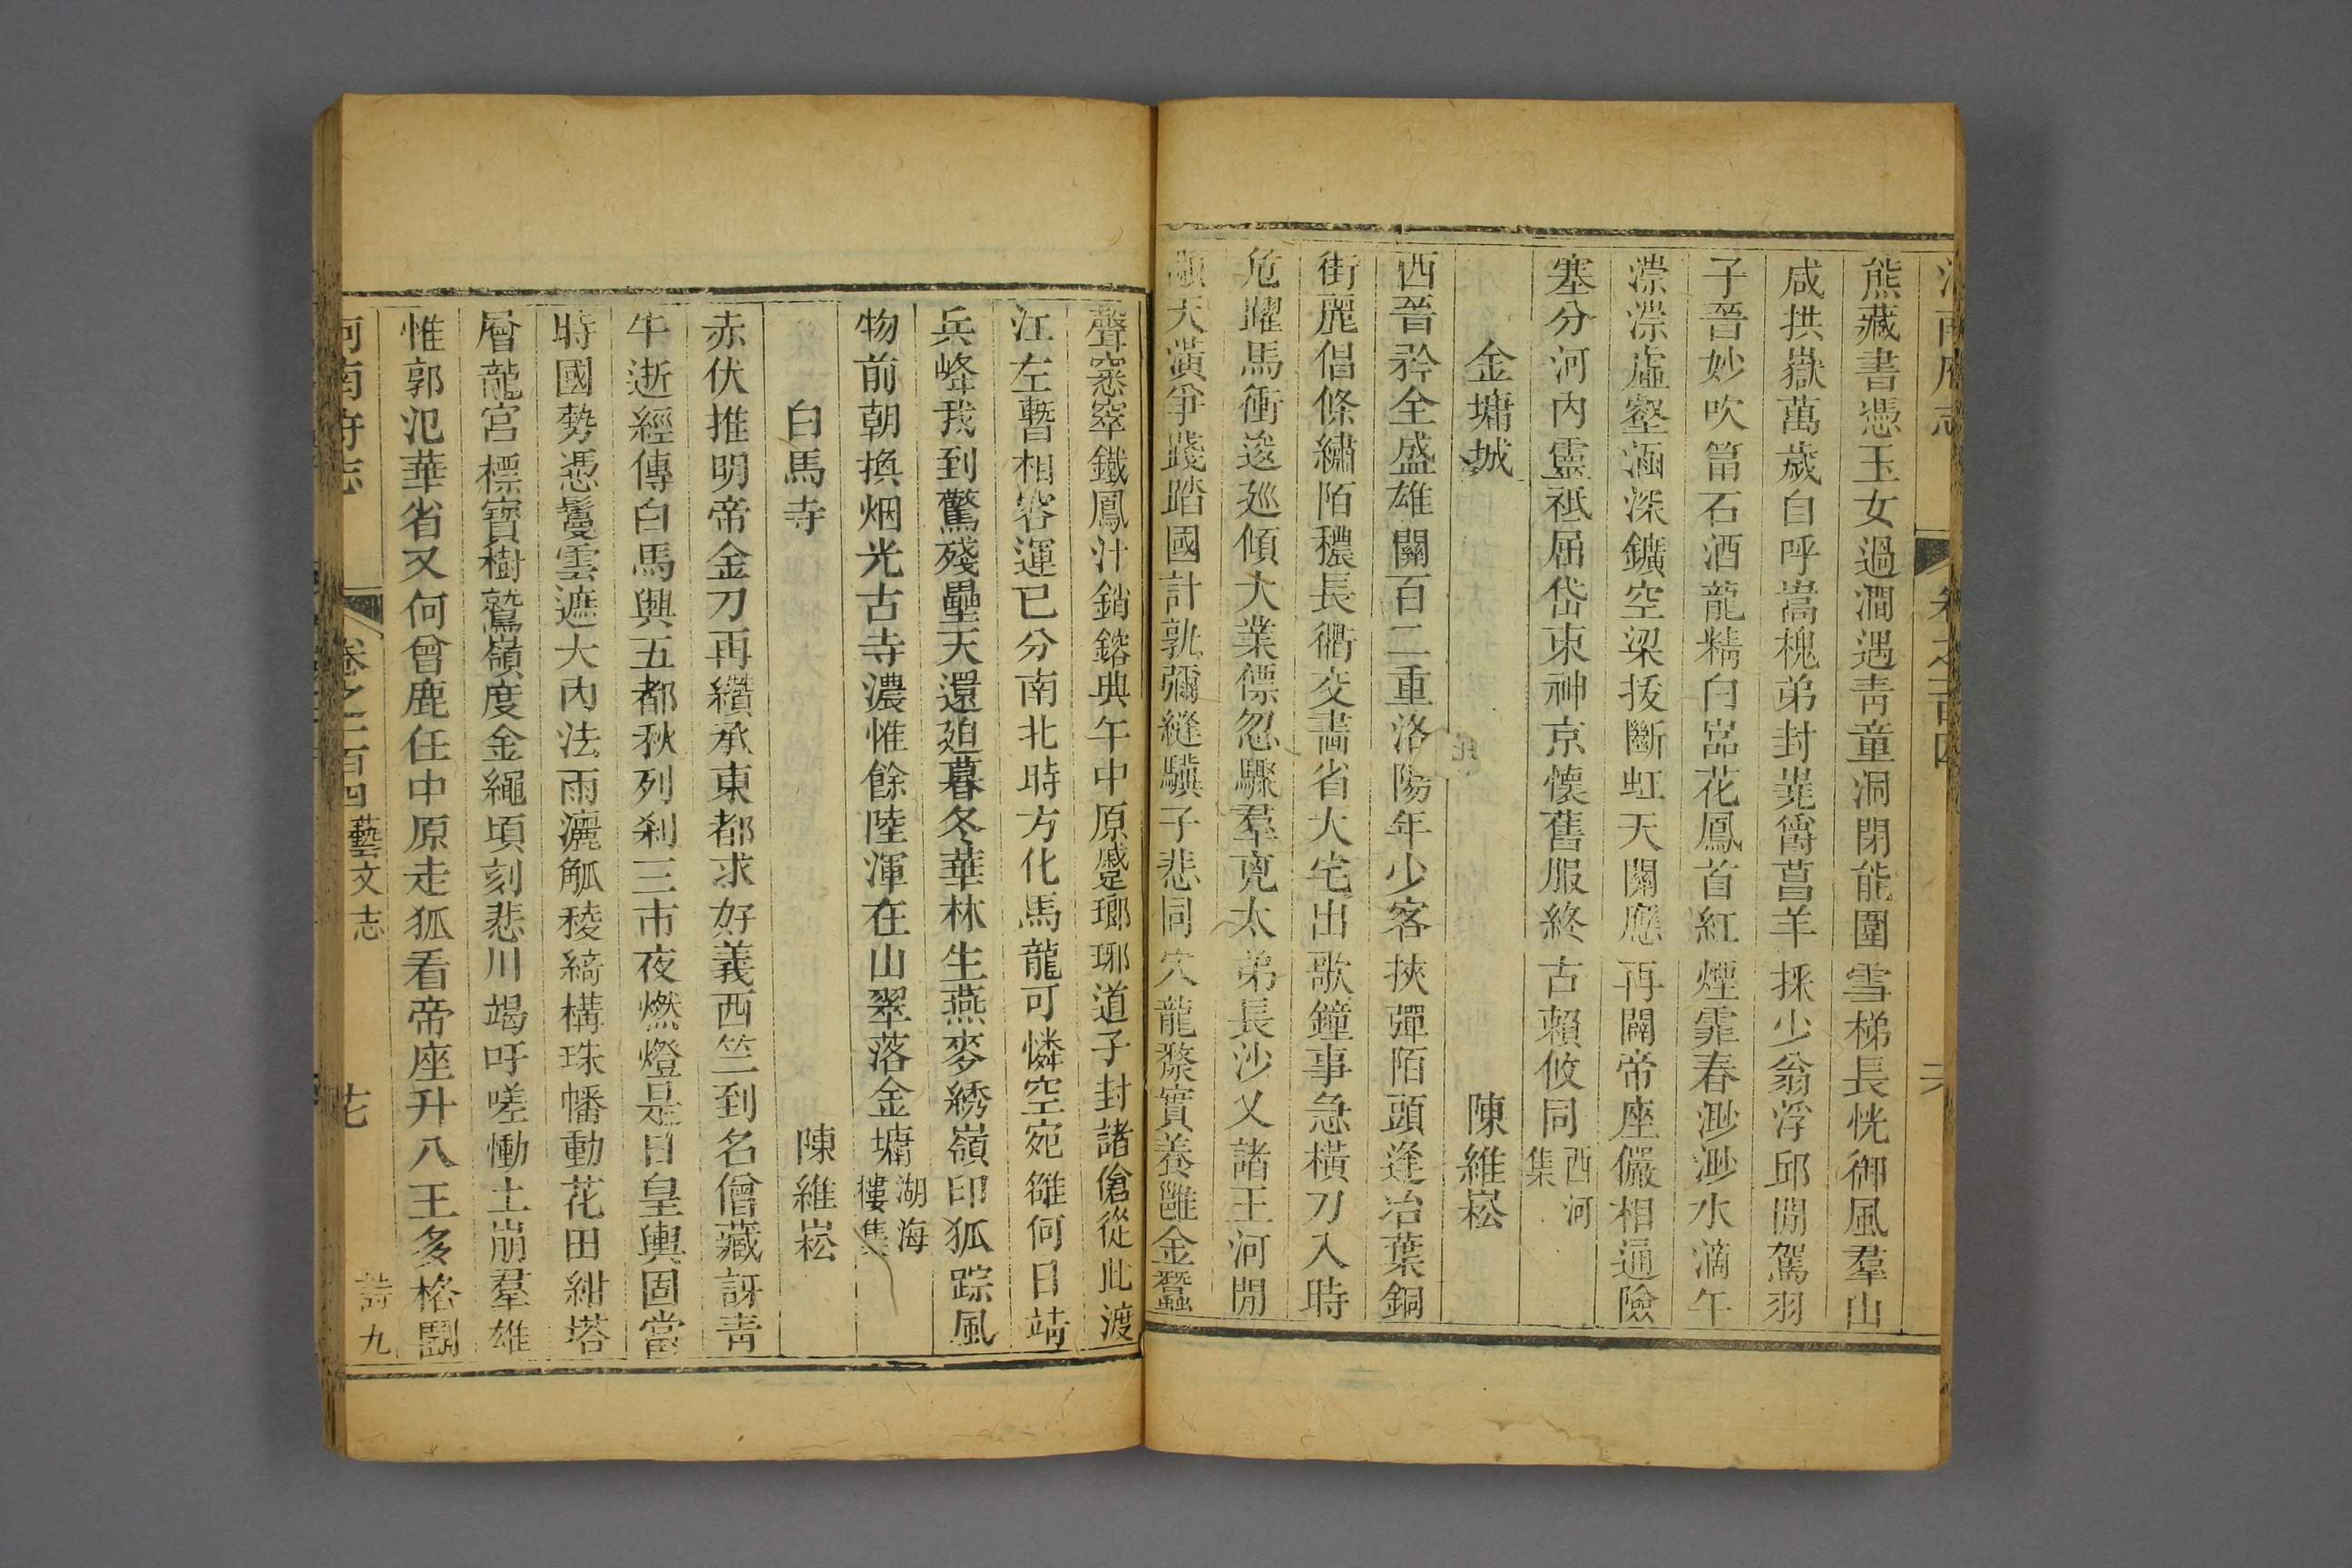 熊藏書憑玉女過澗遇青童洞閉能圍雪梯長恍御風羣山
咸拱嶽萬歲自呼嵩槐弟封嵬爵菖羊採少翁浮邱閒駕羽
子晉妙吹笛石酒龍精白嵓花鳳首紅煙霏春渺渺水滴午
淙淙虛壑涵深鑛空梁拔斷虹天關應再闢帝座儼相通險
塞分河內靈祗屆岱東神京懷舊服終古賴攸同 西河集
金墉城 陳維崧
西晉矜全盛雄關百二重洛陽年少客挾彈陌頭逢冶葉銅
街麗倡條繡陌穠長衢交畫省大宅出歌鐘事急橫刀入時
危躍馬衝逡廵傾大業僄忽驟羣兇太弟長沙乂諸王河閒
顒天潢爭踐踏國計孰彌縫驥子悲同穴龍漦實養雝金蠶
聲窸窣鐵鳳汁銷鎔典午中原蹙瑯琊道子封諸傖從此渡
江左暫相容運已分南北時方化馬龍可憐空宛雒何日靖
兵峰我到驚殘壘天還廹暮冬華林生燕麥綉嶺印狐踪風
物前朝換烟光古寺濃惟餘陸渾在山翠落金墉 湖海樓集
白馬寺 陳維崧
赤伏推明帝金刀再纘承東都求好義西竺到名僧藏訝青
牛逝經傳白馬興五都秋列刹三市夜燃燈是日皇輿固當
時國勢憑鬘雲遮大內法雨灑觚稜綺構珠幡動花田紺塔
層龍宮標寶樹鷲嶺度金繩頃刻悲川竭吁嗟慟土崩羣雄
惟郭氾華省又何曾鹿任中原走狐看帝座升八王多格鬭
河南府志 卷之一百四 藝文志 詩九